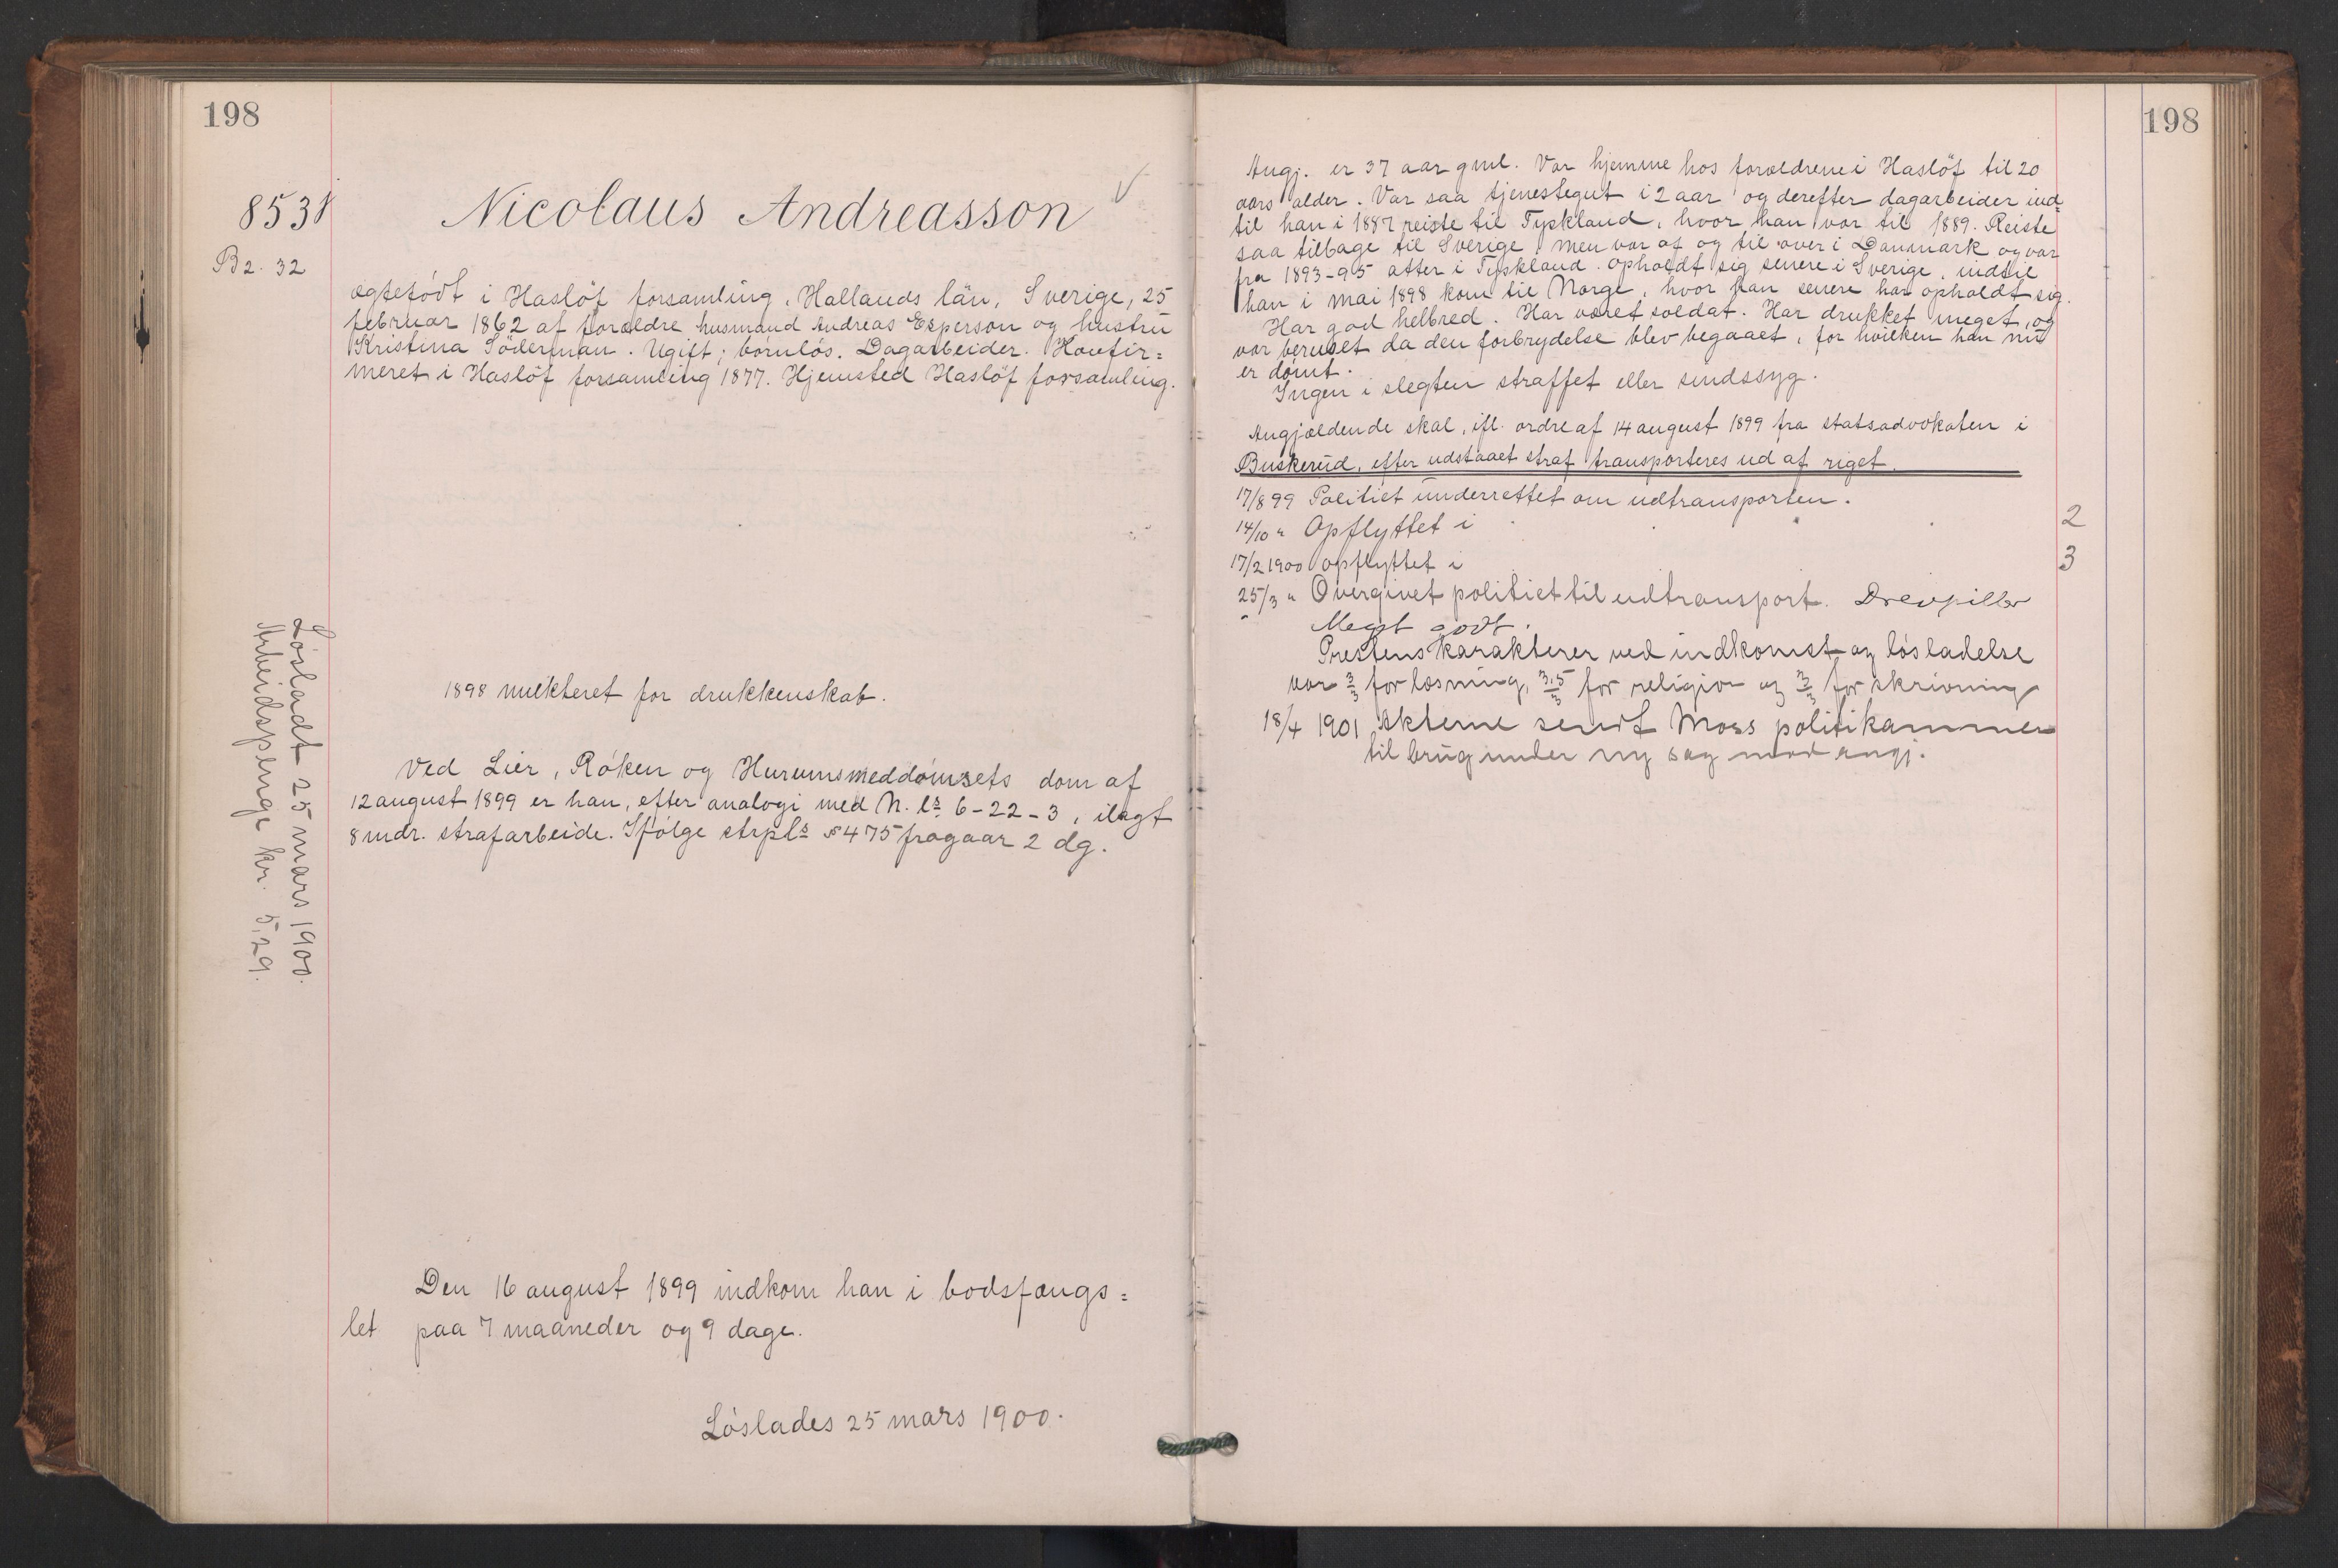 198
8531
B2. 32
Nicolaus Andreasson
ægtefödt i Haslöf forsamling, Hallands län, Sverige, 25
februar 1862 af forældre husmand Andreas Esperson og hustru
Kristina Söderman. Ugift; börnlös. Dagarbeider. Konfir=
meret i Haslöf forsamling 1877. Hjemsted Haslöf forsamling.
1898 mulkteret for drukkenskab.
Ved Lier, Röken og Hurums meddomsrets dom af
12 august 1899 er han, efter analogi med N. ls. 6-22-3, ilagt
8 mdr. strafarbeide. Ifölge strpls § 475 fragaar 2 dg.
Den 16 august 1899 indkom han i bodsfængs=
let paa 7 maaneder og 9 dage.
Löslades 25 mars 1900.
Lösladt 25 mars 1900.
Arbeidspenge kr. 5,29.
198
Angj. er 37 aar gml. Var hjemme hos forældrene i Haslöf til 20
aars alder. Var saa tjenestegut i 2 aar og derefter dagarbeider ind=
til han i 1887 reiste til Tyskland, hvor han var til 1889. Reiste
saa tilbage til Sverige, men var af og til over i Danmark og var
fra 1893-95 atter i Tyskland. Opholdt sig senere i Sverige, indtil
han i mai 1898 kom til Norge, hvor han senere har opholdt sig.
Har god helbred. Har været soldat. Har drukket meget, og
var beruset da den forbrydelse blev begaaet, for hvilken han nu
er dömt.
Ingen i slegten straffet eller sindssyg.
Angjældende skal, ifl. ordre af 14 august 1899 fra statsadvokaten i
Buskerud, efter udstaaet straf transporteres ud af riget.
17/8 99 Politiet underrettet om udtransporten.
14/10 " Opflyttet i 2
17/2 1900 opflyttet i 3
25/3 " Overgivet politiet til udtransport. Drevpiller
Meget godt.
Prestens karakterer ved indkomst og lösladelse
var 3/3 for læsning, 3,5/3 for religion og 3/3 for skrivning
18/4 1901 Akterne sendt Moss politikammer
til brug under ny sag mod angj.